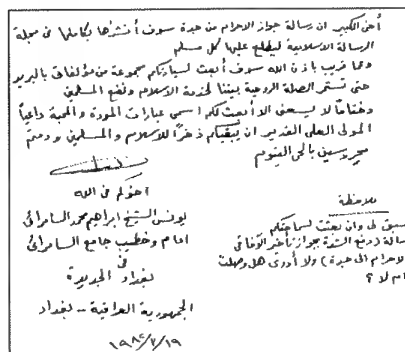 أخي الكبير ان رسالة جواز الاحرام من جدة سوف أنشرها بكاملها في مجلة
الرسالة الاسلامية ليطلع عليها كل مسلم
وعما قريب باذن الله سوف أبعث لسيادتكم مجموعة من مؤلفاتي بالبريد
حتى تستمر الصلة الروحية بيننا لخدمة الاسلام ونفع المسلمين
وختاماً لا يسعني الا أبعث لكم اسمى عبارات المودة والمحبة داعياً
المولى العلي القدير ان يبقيكم ذخراً للاسلام والمسلمين ودمتم
محروسين بالحي القيوم
اخوكم في الله
يونس الشيخ ابراهيم محمد السامرائي
امام وخطيب جامع السامرائي
في
بغداد الجديدة
الجمهورية العراقية - بغداد
١٩٨٤/٢/١٩
ملاحظة
سبق لي وان بعثت لسماحتكم
رسالة (دفع الشدة بجواز تأخير الآفاقي
الاحرام الى جدة) ولا أدري هل وصلت
ام لا ؟